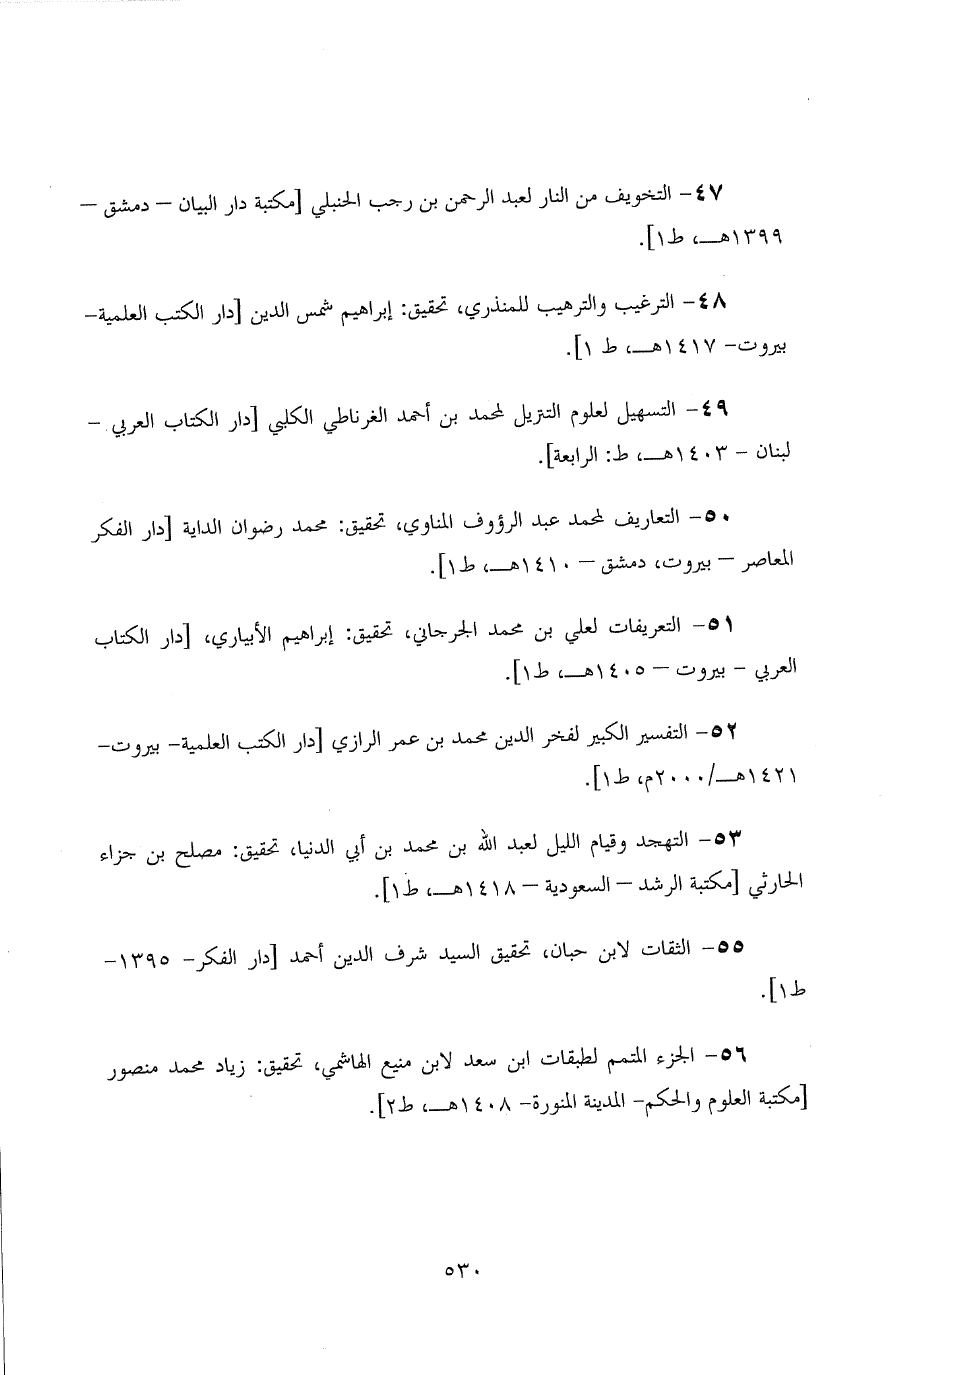 ٤٧- التخويف من النار لعبد الرحمن بن رجب الحنبلي [مكتبة دار البيان – دمشق –
١٣٩٩هـ، ط١].
٤٨- الترغيب والترهيب للمنذري، تحقيق: إبراهيم شمس الدين [دار الكتب العلمية-
بيروت- ١٤١٧هـ، ط ١].
٤٩- التسهيل لعلوم التنزيل لمحمد بن أحمد الغرناطي الكلبي [دار الكتاب العربي –
لبنان – ١٤٠٣هـ، ط: الرابعة].
٥٠- التعاريف لمحمد عبد الرؤوف المناوي، تحقيق: محمد رضوان الداية [دار الفكر
المعاصر – بيروت، دمشق – ١٤١٠هـ، ط١].
٥١- التعريفات لعلي بن محمد الجرجاني، تحقيق: إبراهيم الأبياري، [دار الكتاب
العربي – بيروت – ١٤٠٥هـ، ط١].
٥٢- التفسير الكبير لفخر الدين محمد بن عمر الرازي [دار الكتب العلمية- بيروت-
١٤٢١هـ/٢٠٠٠م، ط١].
٥٣- التهجد وقيام الليل لعبد الله بن محمد بن أبي الدنيا، تحقيق: مصلح بن جزاء
الحارثي [مكتبة الرشد – السعودية – ١٤١٨هـ، ط١].
٥٥- الثقات لابن حبان، تحقيق السيد شرف الدين أحمد [دار الفكر- ١٣٩٥-
ط١].
٥٦- الجزء المتمم لطبقات ابن سعد لابن منيع الهاشمي، تحقيق: زياد محمد منصور
[مكتبة العلوم والحكم- المدينة المنورة- ١٤٠٨هـ، ط٢].
٥٣٠